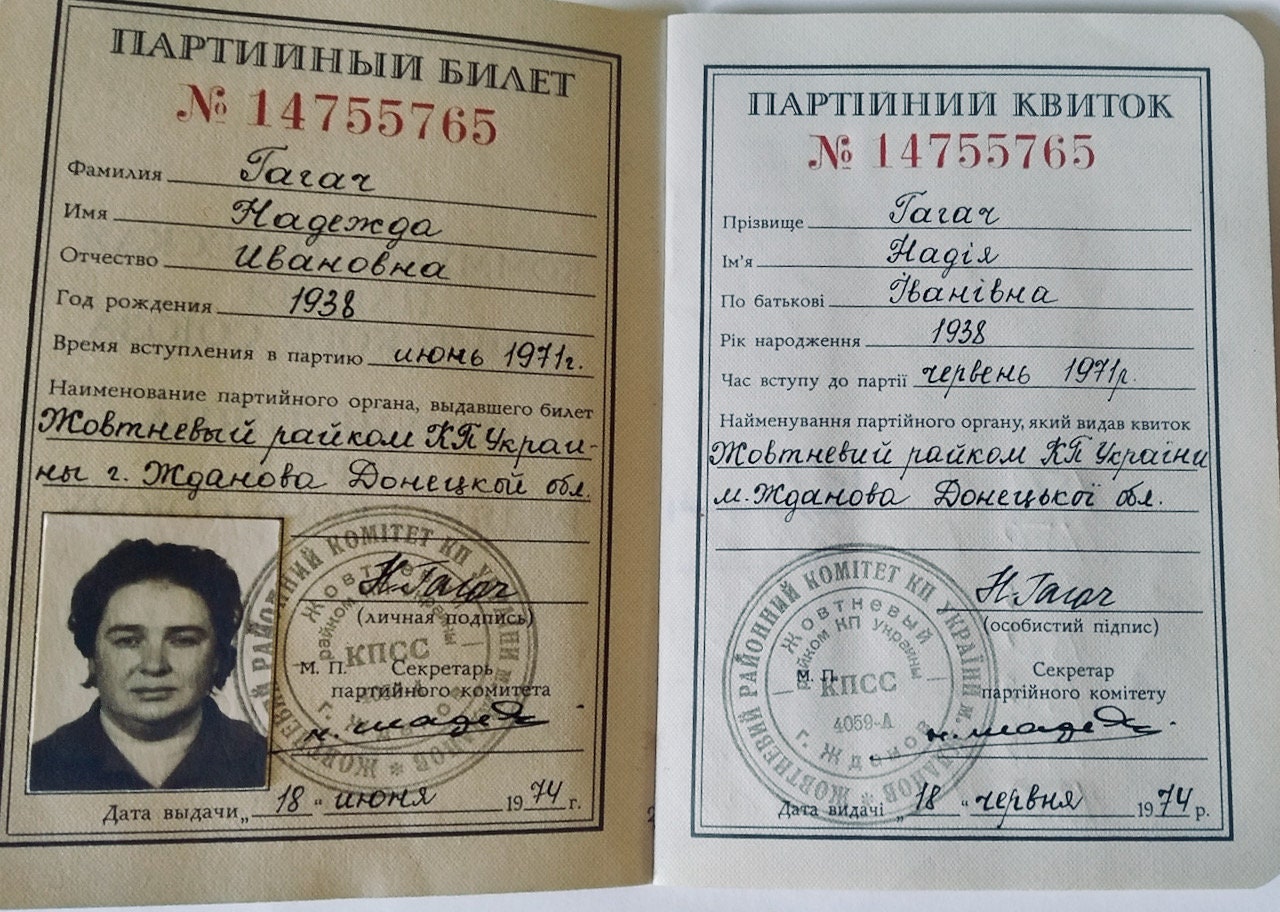 ПАРТИЙНЫЙ БИЛЕТ
№ 14755765
Фамилия Гагач
Имя Надежда
Отчество Ивановна
Год рождения 1938
Время вступления в партию июнь 1971г.
Наименование партийного органа, выдавшего билет
Жовтневый райком КП Украи-
ны г. Жданова Донецкой обл.
Н.Гагач
(личная подпись)
М. П. Секретарь
партийного комитета
Дата выдачи „ 18 " июня 1974 г.
ЖОВТНЕВИЙ РАЙОННИЙ КОМІТЕТ КП УКРАЇНИ м. ЖДАНОВ
Жовтневый
райком КП Украины
КПСС
4059-А
г. Жданов
ПАРТІЙНИЙ КВИТОК
№ 14755765
Прізвище Гагач
Ім'я Надія
По батькові Іванівна
Рік народження 1938
Час вступу до партії червень 1971р.
Найменування партійного органу, який видав квиток
Жовтневий райком КП України
м. Жданова Донецької обл.
Н.Гагач
(особистий підпис)
М. П. Секретар
партійного комітету
Дата видачі „ 18 " червня 1974 р.
ЖОВТНЕВИЙ РАЙОННИЙ КОМІТЕТ КП УКРАЇНИ м. ЖДАНОВ
Жовтневый
райком КП Украины
КПСС
4059-А
г. Жданов